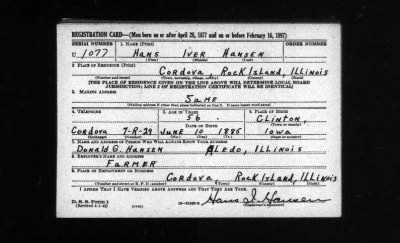 REGISTRATION CARD—(Men born on or after April 28, 1877 and on or before February 16, 1897)
SERIAL NUMBER 1. NAME (Print)
U 1077 HANS IVER HANSEN
(First) (Middle) (Last)
2. PLACE OF RESIDENCE (Print)
CORDOVA, ROCK ISLAND, ILLINOIS
(Number and street) (Town, township, village, or city) (County) (State)
[THE PLACE OF RESIDENCE GIVEN ON THE LINE ABOVE WILL DETERMINE LOCAL BOARD
JURISDICTION; LINE 2 OF REGISTRATION CERTIFICATE WILL BE IDENTICAL]
3. MAILING ADDRESS
SAME
[Mailing address if other than place indicated on line 2. If same insert word same]
4. TELEPHONE 5. AGE IN YEARS 6. PLACE OF BIRTH
56 CLINTON,
DATE OF BIRTH (Town or county)
CORDOVA 7-R-29 JUNE 10 1885 IOWA
(Exchange) (Number) (Mo.) (Day) (Yr.) (State or country)
7. NAME AND ADDRESS OF PERSON WHO WILL ALWAYS KNOW YOUR ADDRESS
DONALD G. HANSEN ALEDO, ILLINOIS
8. EMPLOYER'S NAME AND ADDRESS
FARMER
9. PLACE OF EMPLOYMENT OR BUSINESS
CORDOVA, ROCK ISLAND, ILLINOIS
(Number and street or R. F. D. number) (Town) (County) (State)
I AFFIRM THAT I HAVE VERIFIED ABOVE ANSWERS AND THAT THEY ARE TRUE.
D. S. S. Form 1
(Revised 4-1-42) (over) Hans I. Hansen
(Registrant's signature)